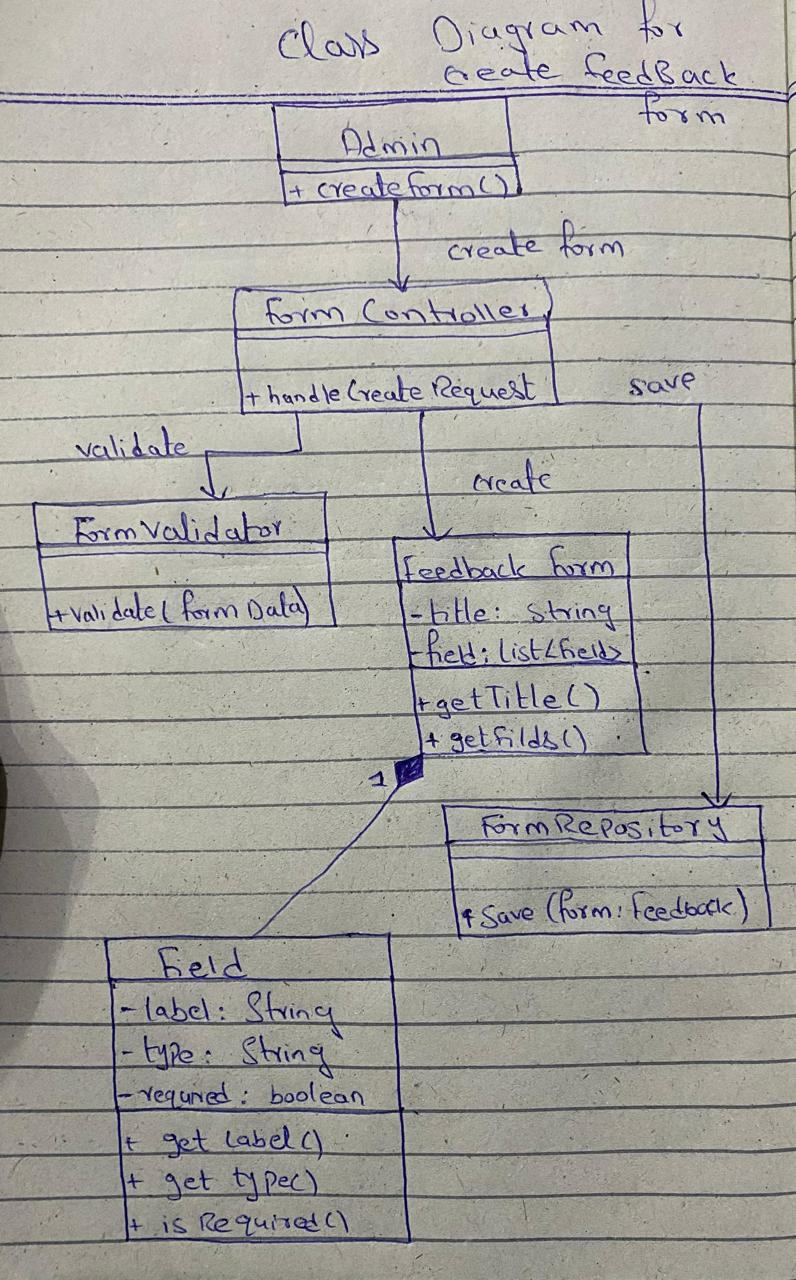 Class Diagram for
create feedBack
form
Admin
+ createform()
create form
Form Controller
+ handle Create Request
save
validate
create
Form validator
+ validate ( form Data)
feedback form
- title: String
- field: list<field>
+ getTitle()
+ getfilds()
1
Form Repository
+ Save (form: feedback)
Field
- label: String
- type: String
- requred: boolean
+ get label()
+ get type()
+ is Required()